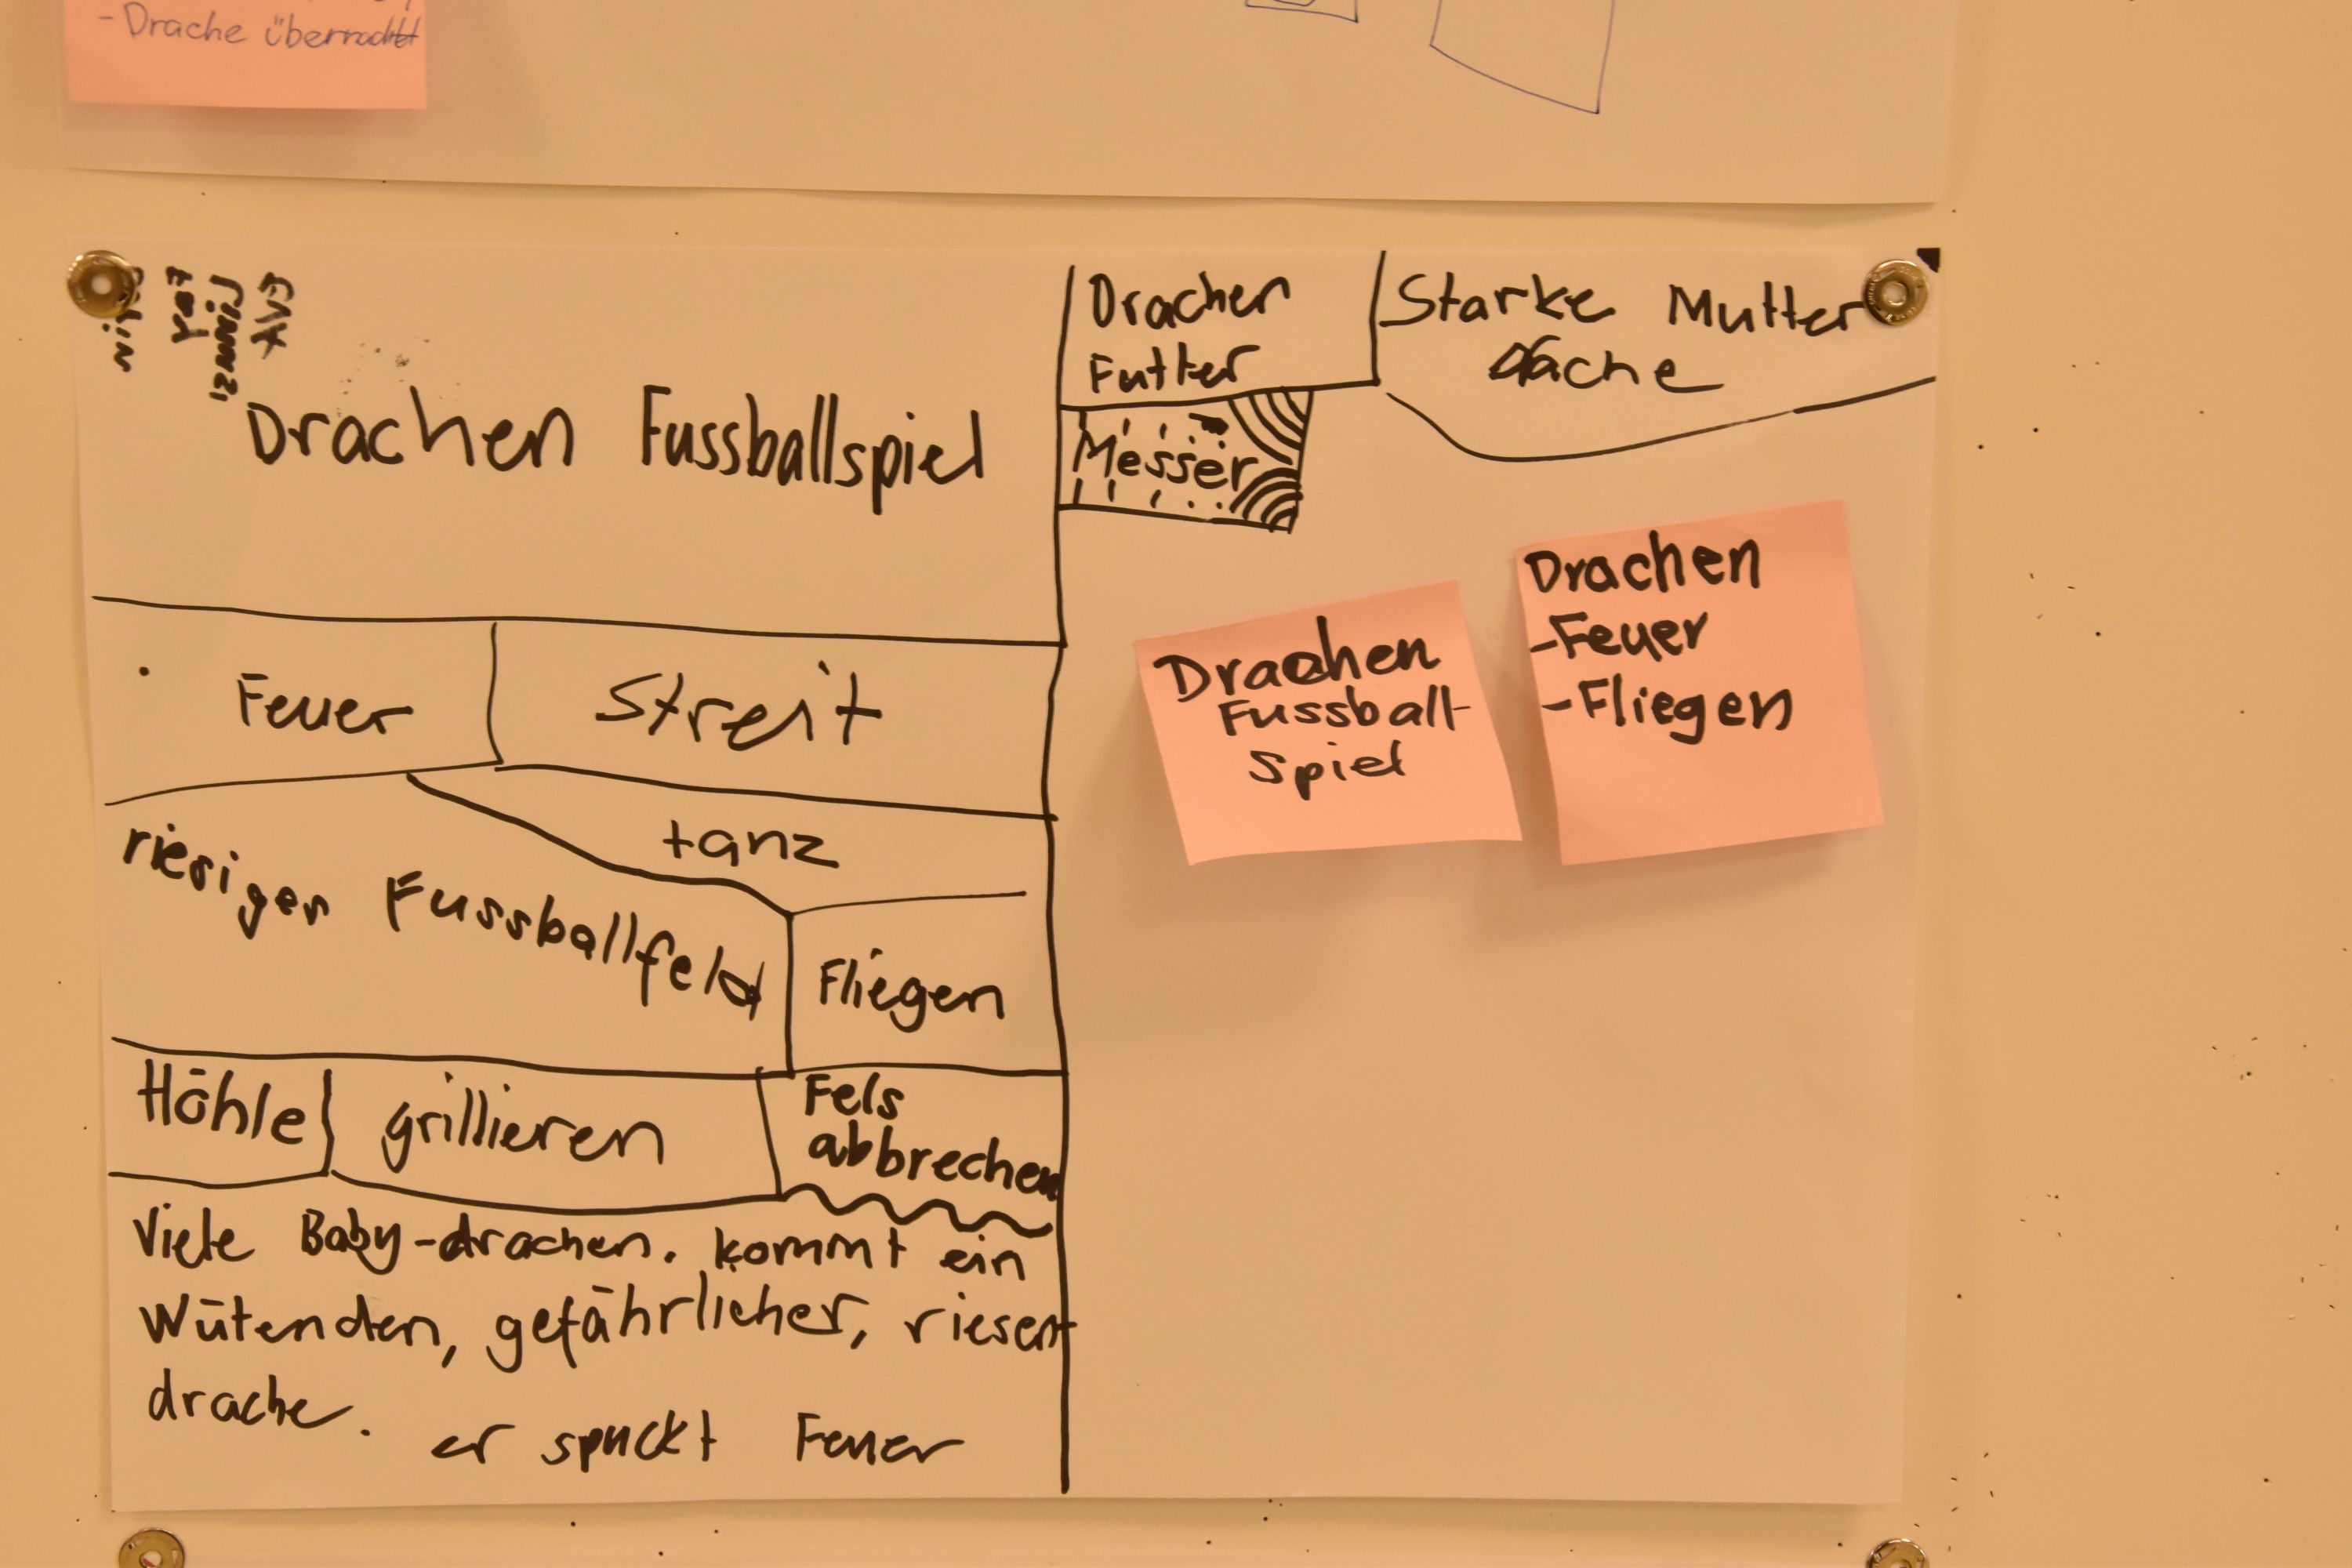 - Drache
Drachen Fussballspiel
Drachen
Futter
Starke Mutter
Messer
Feuer
Streit
tanz
riesigen Fussballfeld
Fliegen
Höhle
grillieren
Fels
abbrechen
Viele Baby-drachen. kommt ein
Wütenden, gefährlicher, riesen
drache.
er spuckt Feuer
Drachen
Fussball-
spiel
Drachen
-Feuer
-Fliegen